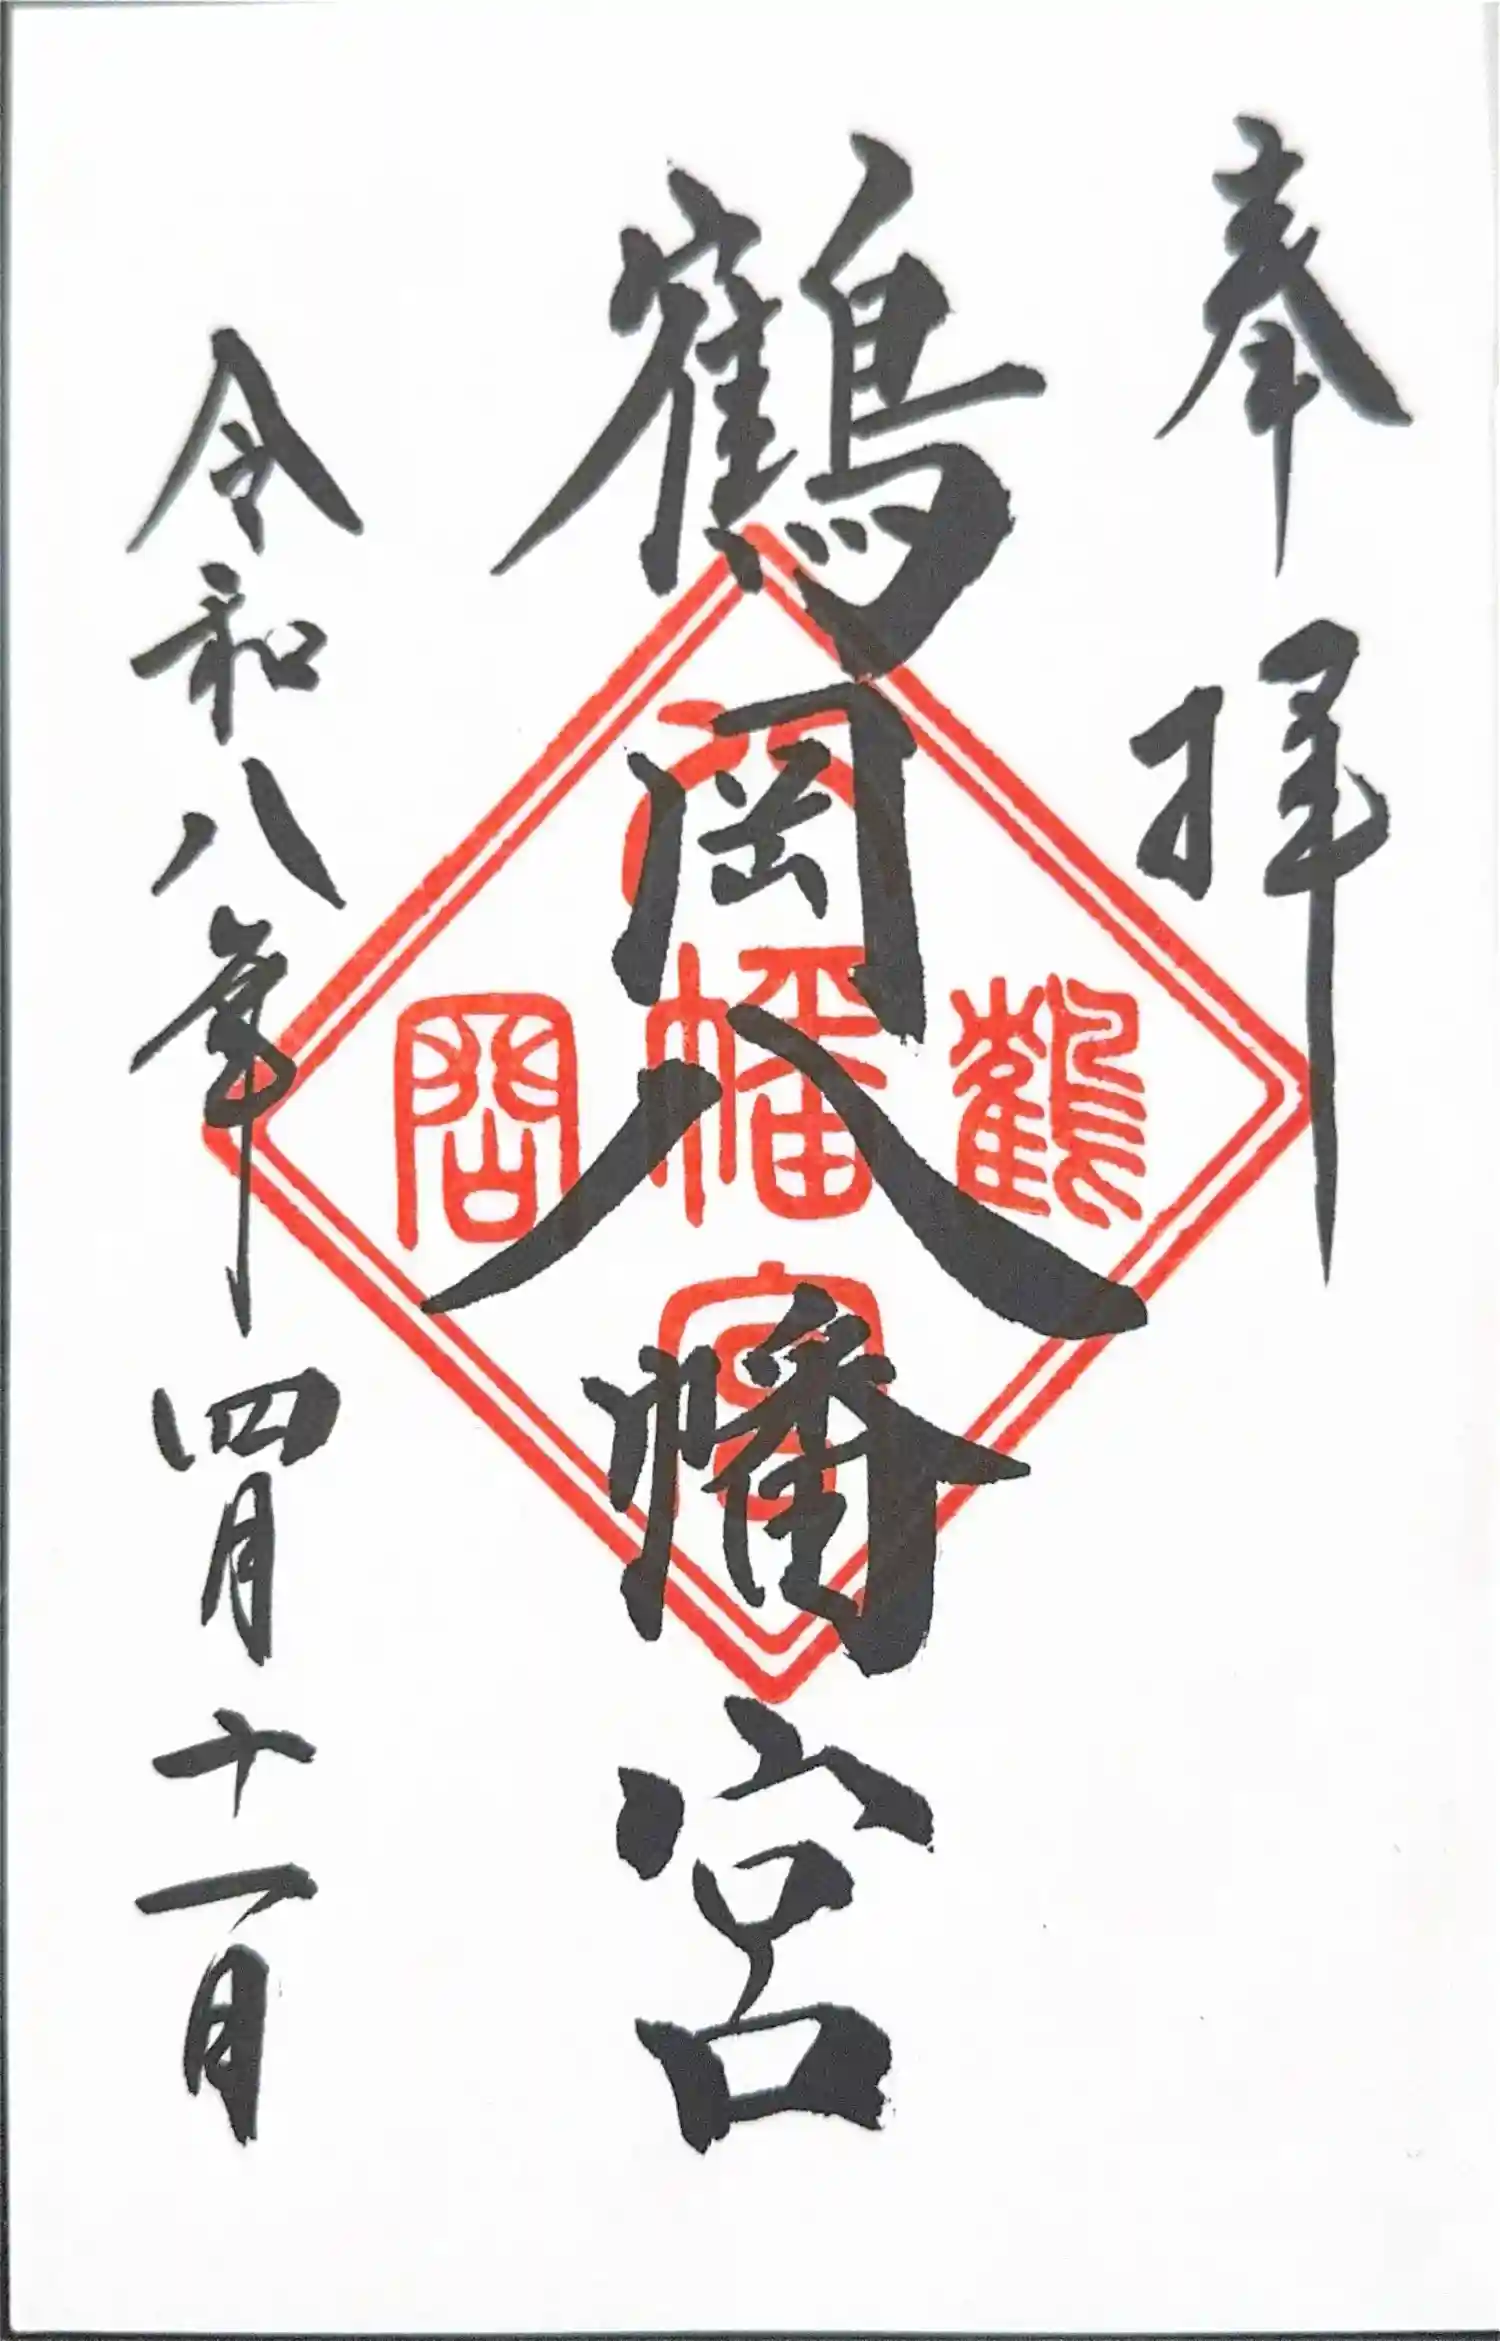 奉拝
鶴岡八幡宮
鶴岡
八幡宮
令和八年四月十一日